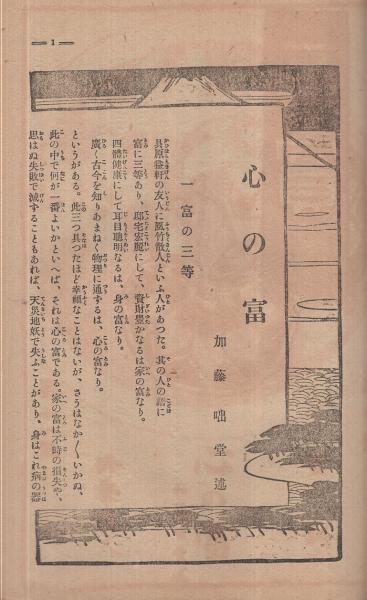 — 1 —
心の富
加藤咄堂述
一 富の三等
貝原益軒の友人に風竹散人といふ人があつた。其の人の語に
富に三等あり、邸宅宏麗にして、資財豊かなるは家の富なり。
四體健康にして耳目聰明なるは、身の富なり。
廣く古今を知りあまねく物理に通ずるは、心の富なり。
といふがある。此三つ具つたほど幸福なことはないが、さうはなか〱いかぬ、
此の中で何が一番よいかといへば、それは心の富である。家の富は不時の損失や、
思はぬ失敗で滅することもあれば、天災地妖で失ふことがあり、身はこれ病の器